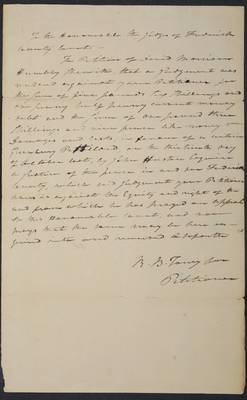 To the Honourable the Judges of Frederick
County Court —
The Petition of David Morrison
Humbly Sheweth that a Judgment was
rendered against your Petitioner for
the Sum of four pounds Six Shillings and
one penny half penny current money
debt and the Sum of One pound three
Shillings and nine pence like money
Damages and Costs in favour of a certain
Hilliard on the thirteenth day
of October last, by John Esquire
a Justice of the peace in and for Frederick
County, which said Judgment your Petitioner
is against the Equity and right of the
and from which he has prayed an appeal
to this Honourable Court, and now
prays that the same may be here
and
R. B. Taney for
Petitioner